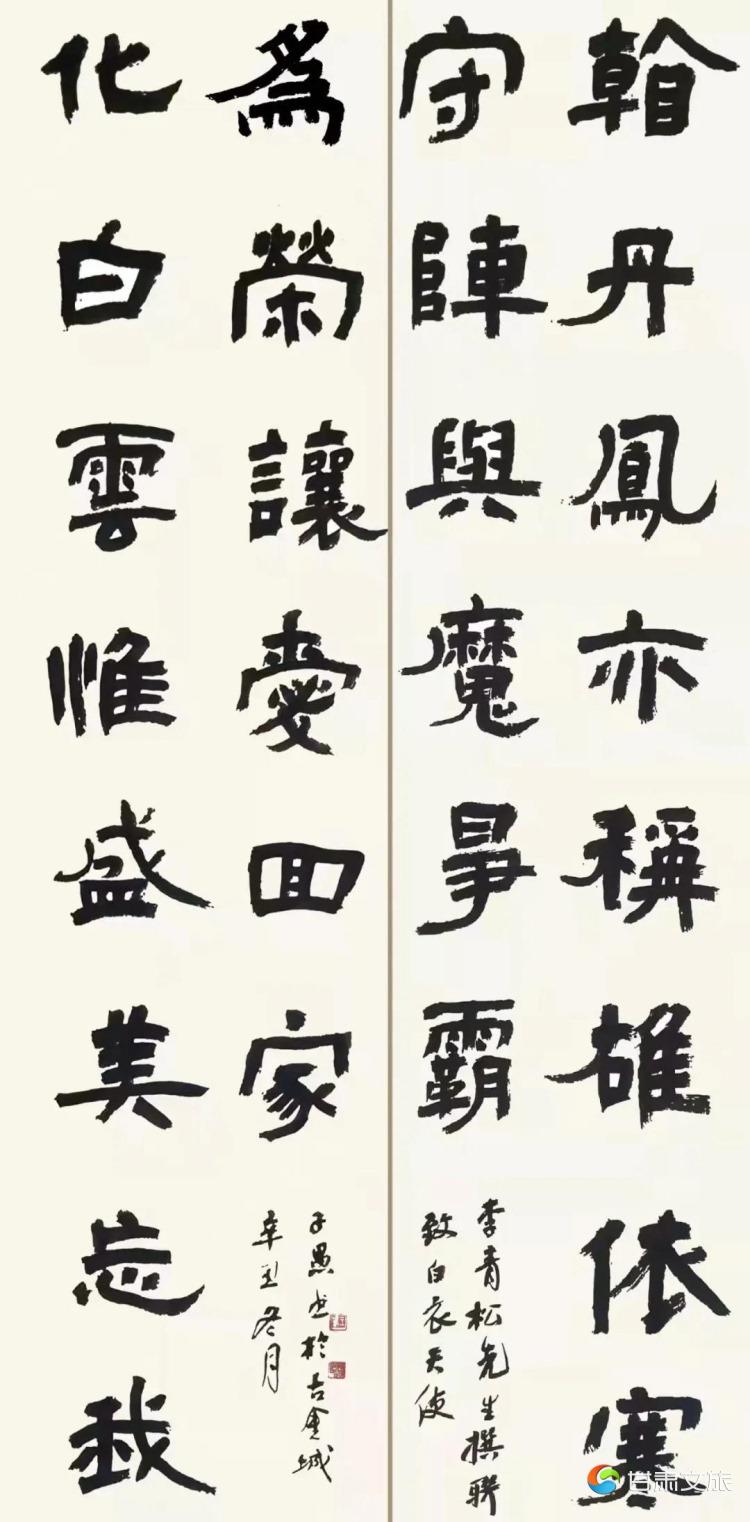 丹鳳亦稱雄依寒
守陣與魔爭霸
李青松先生撰聯
致白衣天使
化白雲惟盛美忘我
為榮讓愛回家
子愚書於古金城
辛丑冬月
甘肃文旅